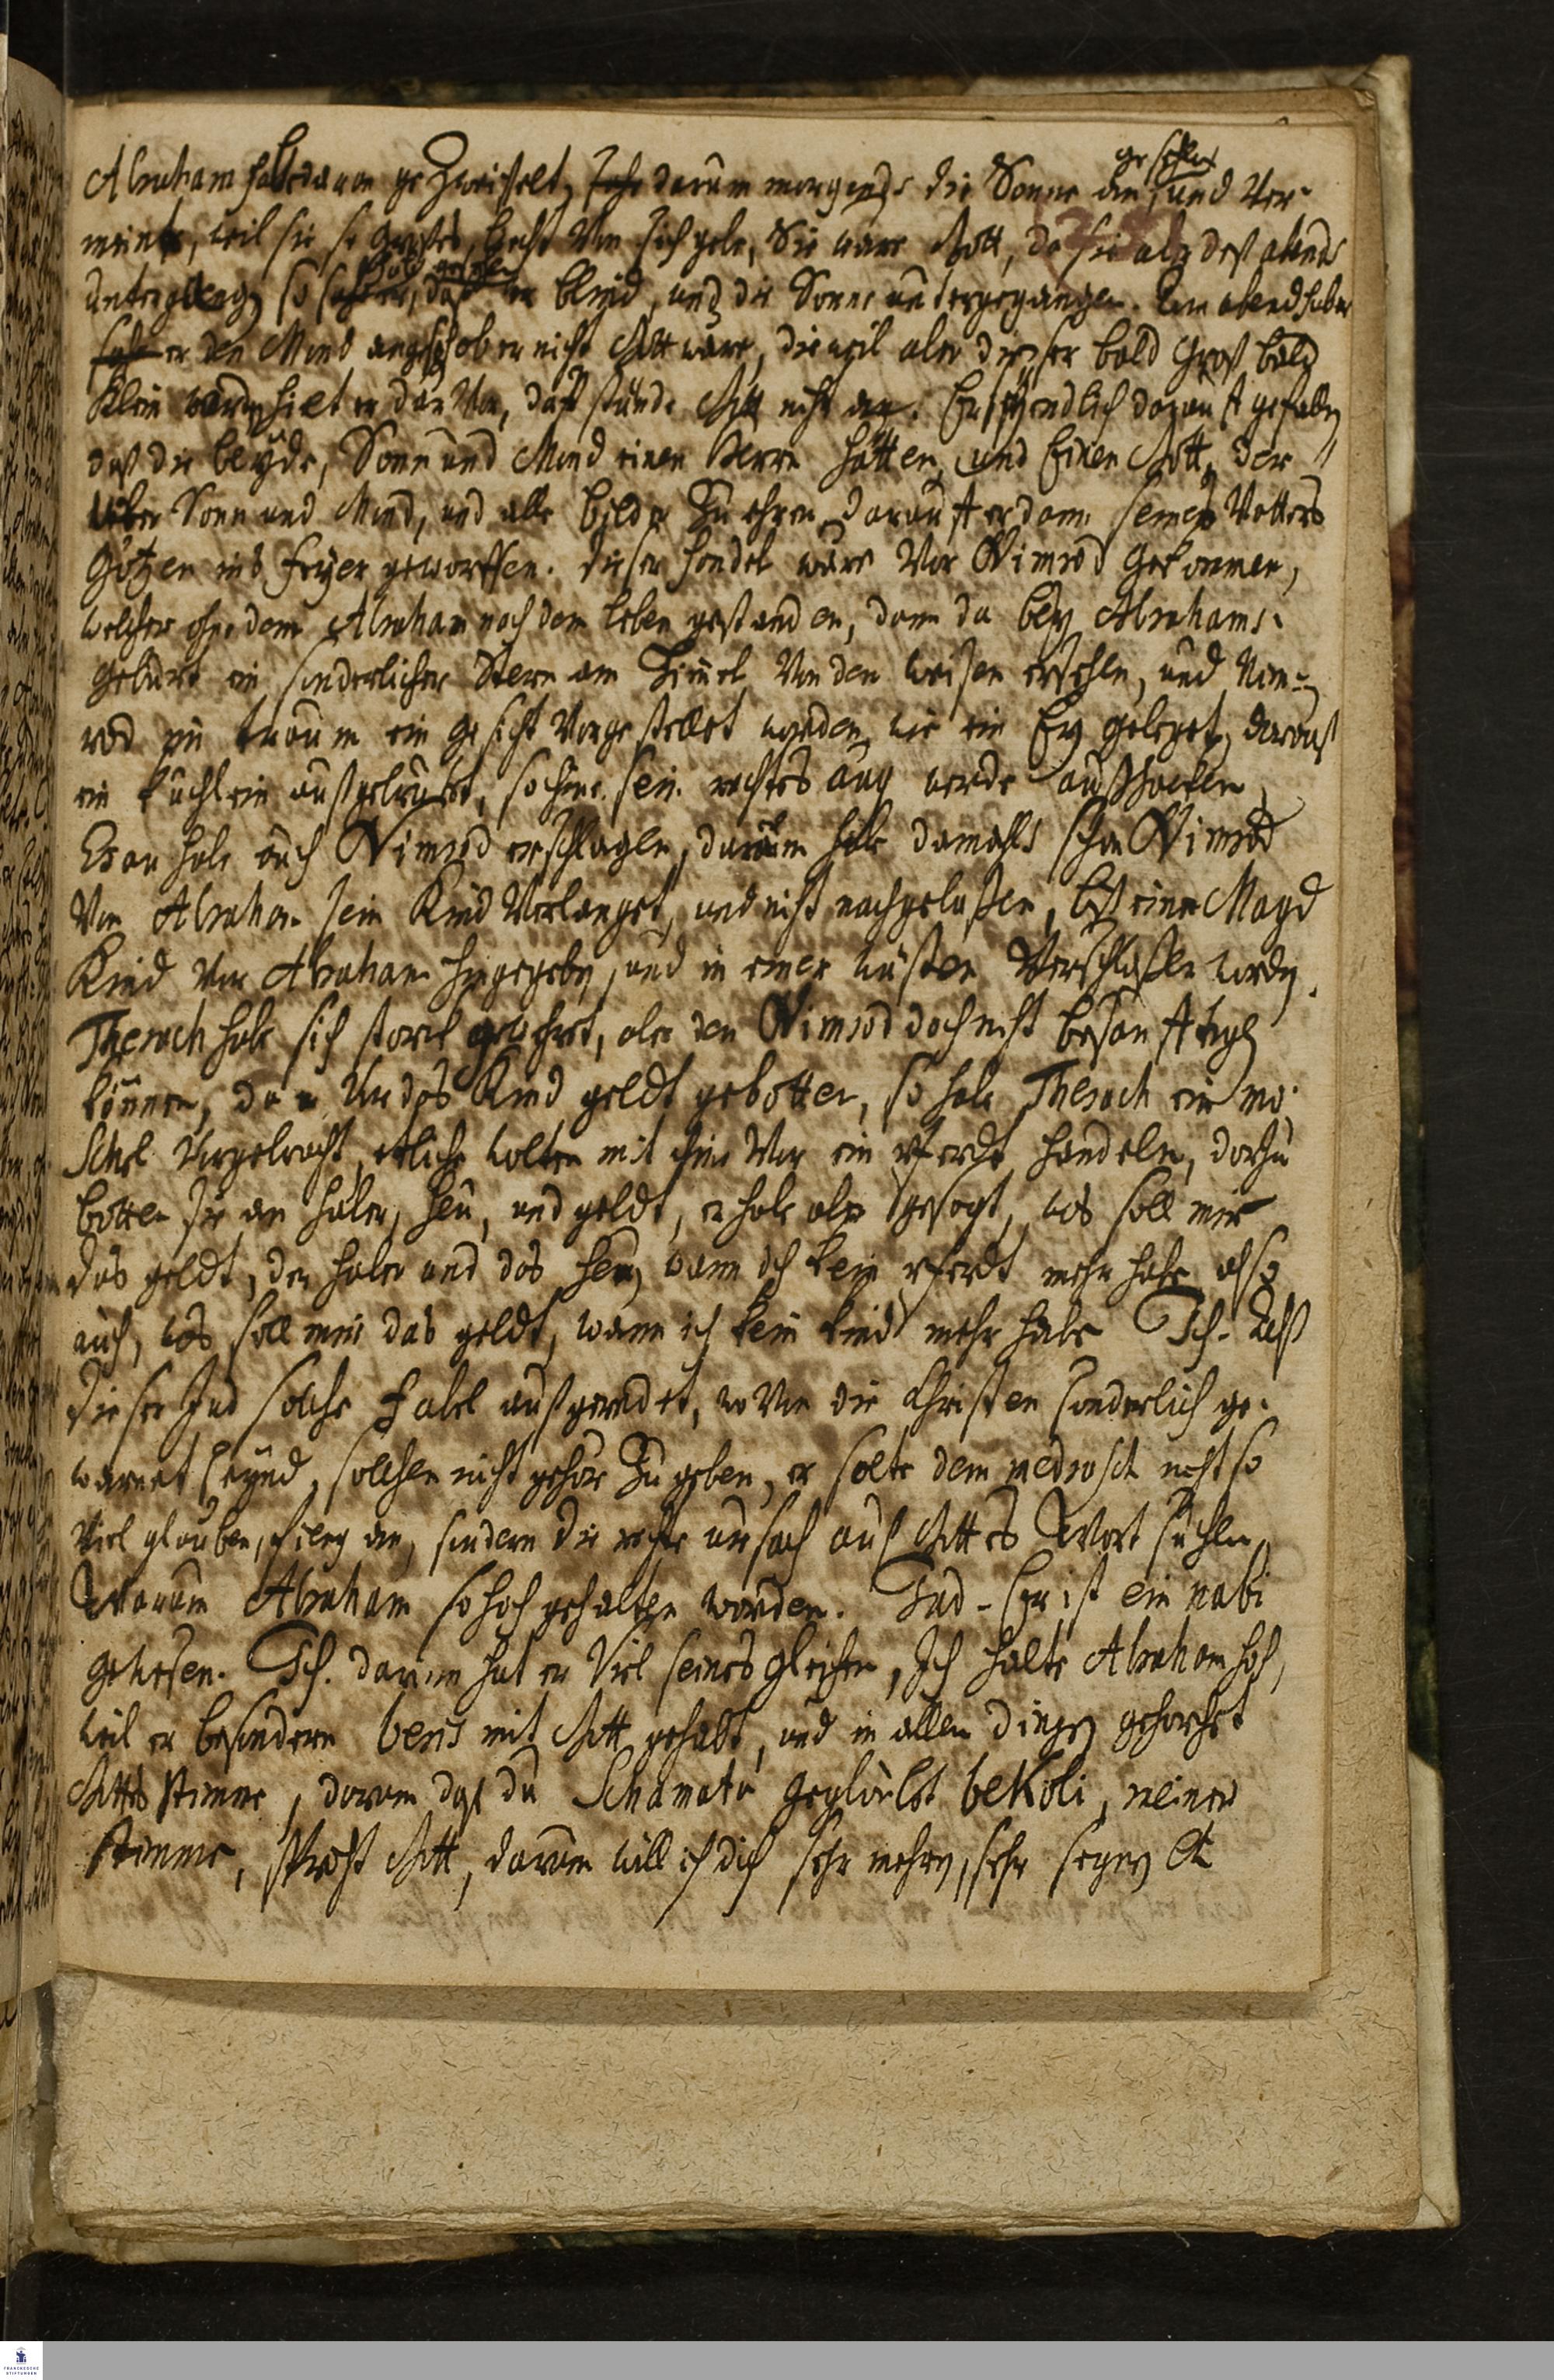 Abraham habe daran gezweiffelt, habe darum morgends die Sonne an gesehen und ver-
meint, weil sie so grosses liecht von sich gebe, Sie ware Gott, da sie aber deß abends
untergieng, so habe er gesehen, daß er blind, und die Sonne untergegangen. Am abend habe
er den Mond angesehen ober nicht Gott ware, dieweil aber dieser bald groß bald
klein werde, hielt er darvor, daß stünde Gott nicht an. Er sey endlich darauff gefallen
daß die beyde, Sonn und Mond einen Herrn hätten, und Einen Gott, der
über Sonn und Mond, und alle bilder zu ehren, darauff er dann seines Vatters
Götzen ins feyer geworffen. dieser handel ware vor Nimrod gekommen,
welcher ohne dem Abraham nach dem leben gestanden, dann da bey Abrahams
geburt ein sonderlicher Stern am Himel von den weisen ersehen, und Nim-
rod im traum ein gesicht vorgestellet worden, wie ein Ey geleget, darauß
ein küchlein außgebrütet, so ihme sein rechtes aug werde außhacken,
Esau habe auch Nimrod erschlagen, darum habe damahls schon Nimrod
von Abraham sein Kind verlanget, und nicht nachgelaßen, biß einer Magd
Kind vor Abraham hingegeben, und in einer wüsten verschloßen worden.
Therach habe sich starck gewehret, aber den Nimrod doch nicht besänfftigen
können, da er vor das Kind geldt gebotten, so habe Therach ein mo-
schel vorgebracht, etliche wolten mit ihm vor ein pferdt handeln, darzu
botten sie an haber, heu, und geldt, er habe aber gesagt, was soll mir
das geldt, der haber und das heu, wann ich kein pferdt mehr habe, also
auch, was soll mir das geldt, wann ich kein kind mehr habe. Ich. Daß
dieser Jud solche fabel außgeredet, wovon die Christen sonderlich ge-
warnet seynd, solchen nicht gehör zu geben, er solte dem medrosch nicht so
viel glauben, fieng an, sondern die rechte ursach auß Gottes Wort suchen,
Warum Abraham so hoch gehalten worden. Jud. Er ist ein nabi
gewesen. Ich. darinn hat er viel seines gleichen, Ich halte Abraham hoch,
weil er besondern beris mit Gott gehabt, und in allen dingen gehorcht
Gottes stimme, darum daß du Schamata geglaubt beKoli, meiner
stimme, spricht Gott, darum will ich dich sehr mehren, sehr segnen &c